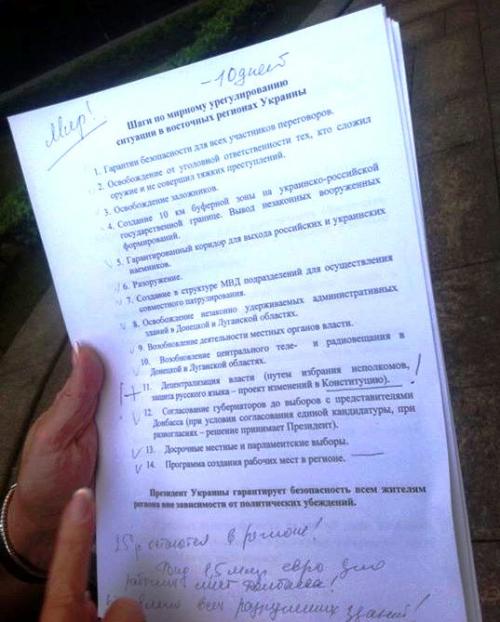 - 10 дней
Мир!
Шаги по мирному урегулированию
ситуации в восточных регионах Украины
1. Гарантии безопасности для всех участников переговоров.
2. Освобождение от уголовной ответственности тех, кто сложил
оружие и не совершил тяжких преступлений.
3. Освобождение заложников.
4. Создание 10 км буферной зоны на украинско-российской
государственной границе. Вывод незаконных вооруженных
формирований.
5. Гарантированный коридор для выхода российских и украинских
наемников.
6. Разоружение.
7. Создание в структуре МВД подразделений для осуществления
совместного патрулирования.
8. Освобождение незаконно удерживаемых административных
зданий в Донецкой и Луганской областях.
9. Возобновление деятельности местных органов власти.
10. Возобновление центрального теле- и радиовещания в
Донецкой и Луганской областях.
11. Децентрализация власти (путем избрания исполкомов,
защита русского языка – проект изменений в Конституцию). !
12. Согласование губернаторов до выборов с представителями
Донбасса (при условии согласования единой кандидатуры, при
разногласиях – решение принимает Президент).
13. Досрочные местные и парламентские выборы.
14. Программа создания рабочих мест в регионе.
Президент Украины гарантирует безопасность всем жителям
региона вне зависимости от политических убеждений.
в регионе!
1,5 млрд евро для
мест Донбасса!
всех разрушенных зданий!